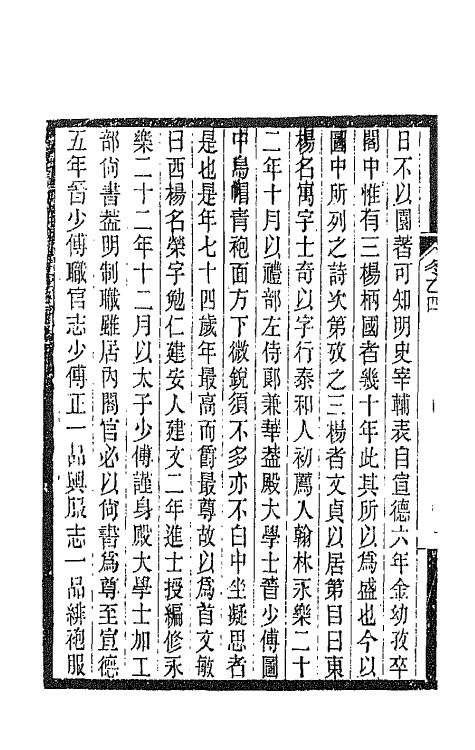 日不以園著可知明史宰輔表自宣德六年金幼孜卒
閣中惟有三楊柄國者幾十年此其所以爲盛也今以
圖中所列之詩次第攷之三楊者文貞以居第目曰東
楊名寓字士奇以字行泰和人初薦入翰林永樂二十
二年十月以禮部左侍郞兼華葢殿大學士晉少傅圖
中烏帽青袍面方下微銳須不多亦不白中坐凝思者
是也是年七十四歲年最高而爵最尊故以爲首文敏
曰西楊名榮字勉仁建安人建文二年進士授編修永
樂二十二年十二月以太子少傅謹身殿大學士加工
部尙書葢明制職雖居內閣官必以尙書爲尊至宣德
五年晉少傅職官志少傅正一品輿服志一品緋袍服